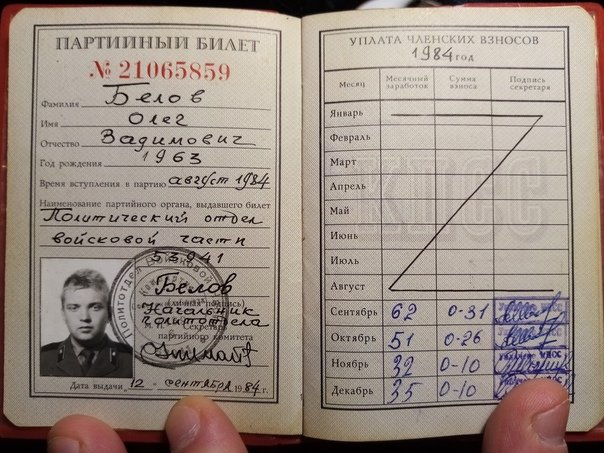 ПАРТИЙНЫЙ БИЛЕТ
№ 21065859
Фамилия Белов
Имя Олег
Отчество Вадимович
Год рождения 1963
Время вступления в партию август 1984
Наименование партийного органа, выдавшего билет
Политический отдел
войсковой части
53941
Белов
(личная подпись)
Начальник
политотдела
Секретарь
партийного комитета
Дата выдачи 12 сентября 1984 г.
УПЛАТА ЧЛЕНСКИХ ВЗНОСОВ
1984 год
Месяц Месячный заработок Сумма взноса Подпись секретаря
Январь
Февраль
Март
Апрель
Май
Июнь
Июль
Август
Сентябрь 62 0-31
Октябрь 51 0-26
Ноябрь 32 0-10
Декабрь 35 0-10
КПСС